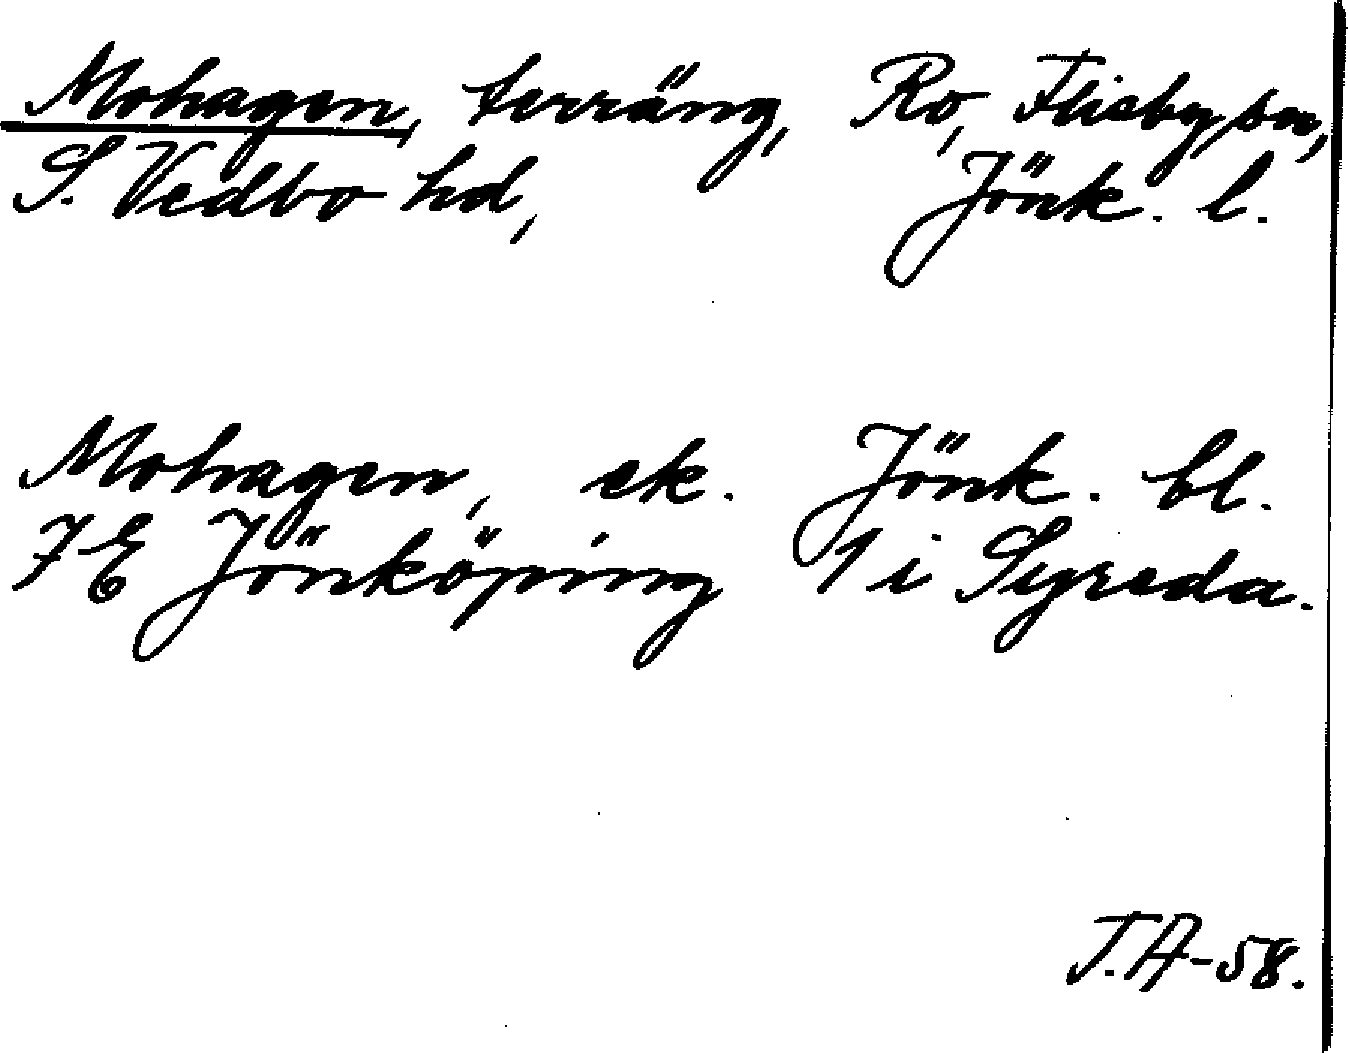 Mohagen, terräng, Ro, Flisby sn,
S. Vedbo hd, Jönk. l.
Mohagen, ek. Jönk. bl.
7E Jönköping 1 i Syreda.
T.A-58.